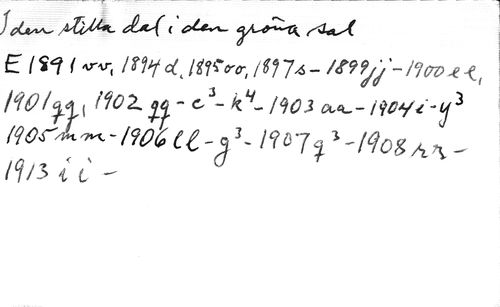 I den stilla dal i den gröna sal
E 1891 vv, 1894 d, 1895 oo, 1897 s - 1899 jj - 1900 ee,
1901 qq, 1902 qq - c³ - k⁴ - 1903 aa - 1904 i - y³
1905 mm - 1906 ll - g³ - 1907 q³ - 1908 rr -
1913 i i -